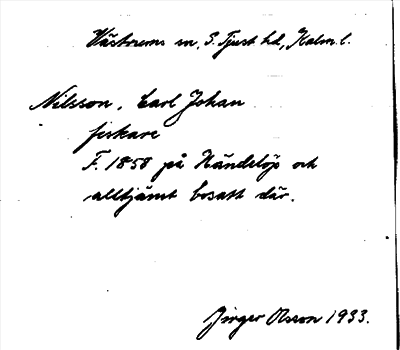 Västrums sn, S. Tjust hd, Kalm. l.
Nilsson, Carl Johan
fiskare
F. 1858 på Händelöp och
alltjämt bosatt där.
Jirger Olsson 1933.